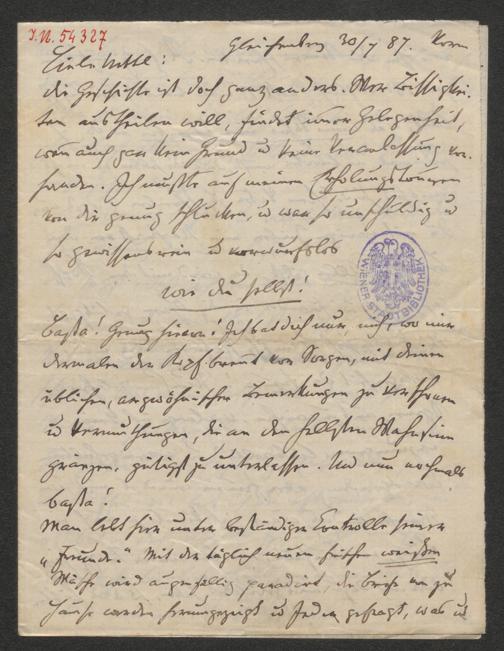 J.N. 54327
Gleichenberg 30/7 87.
Liebe Nettl:
die Geschichte ist doch ganz anders. Wer Süssigkei-
ten austheilen will, findet immer Gelegenheit,
wenn auch gar kein Grund u keine Veranlassung vor-
handen. Ich musste auf meinen Erholungstouren
von dir genug schlucken, u war so unschuldig u
so gewissensrein u vorwurfslos
wie du selbst!
WIENER STADTBIBLIOTHEK
basta! Genug hievon! Ich bat dich nur mich, wo mir
dermalen der Kopf brennt von Sorgen, mit deinen
üblichen, argwöhnischen Bemerkungen zu verschonen
u Vermuthungen, die an den hellsten Wahnsinn
gränzen, gütigst zu unterlassen. Und nun nochmals
basta!
Man lebt hier unter beständiger Controlle seiner
„Freunde." Mit der täglich neuen frischen weißen
Wäsche wird augenfällig paradirt, die Briefe von zu
Hause werden herumgezeigt u Jeder gefragt, was